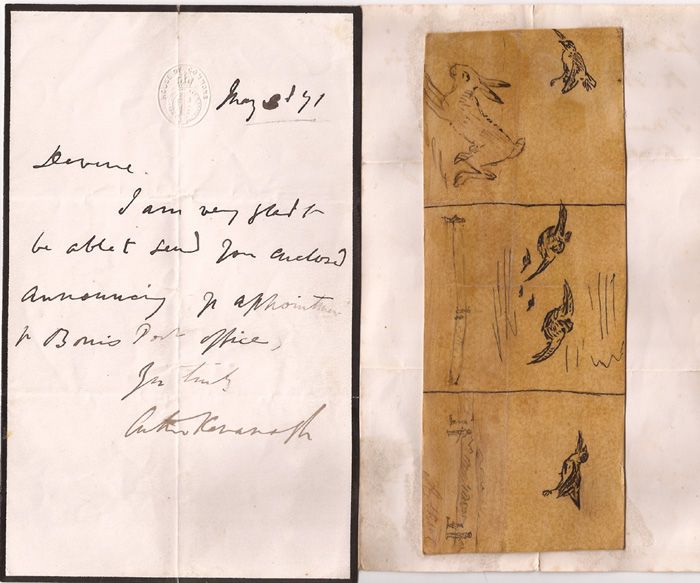 HOUSE OF COMMONS
May 71
Devine.
I am very glad to
be able to send you enclosed
announcing yr appointment
to Borris Post office,
Yrs truly
Arthur Kavanagh